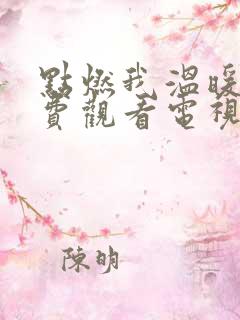 點燃我溫暖
費觀看電視
陳明